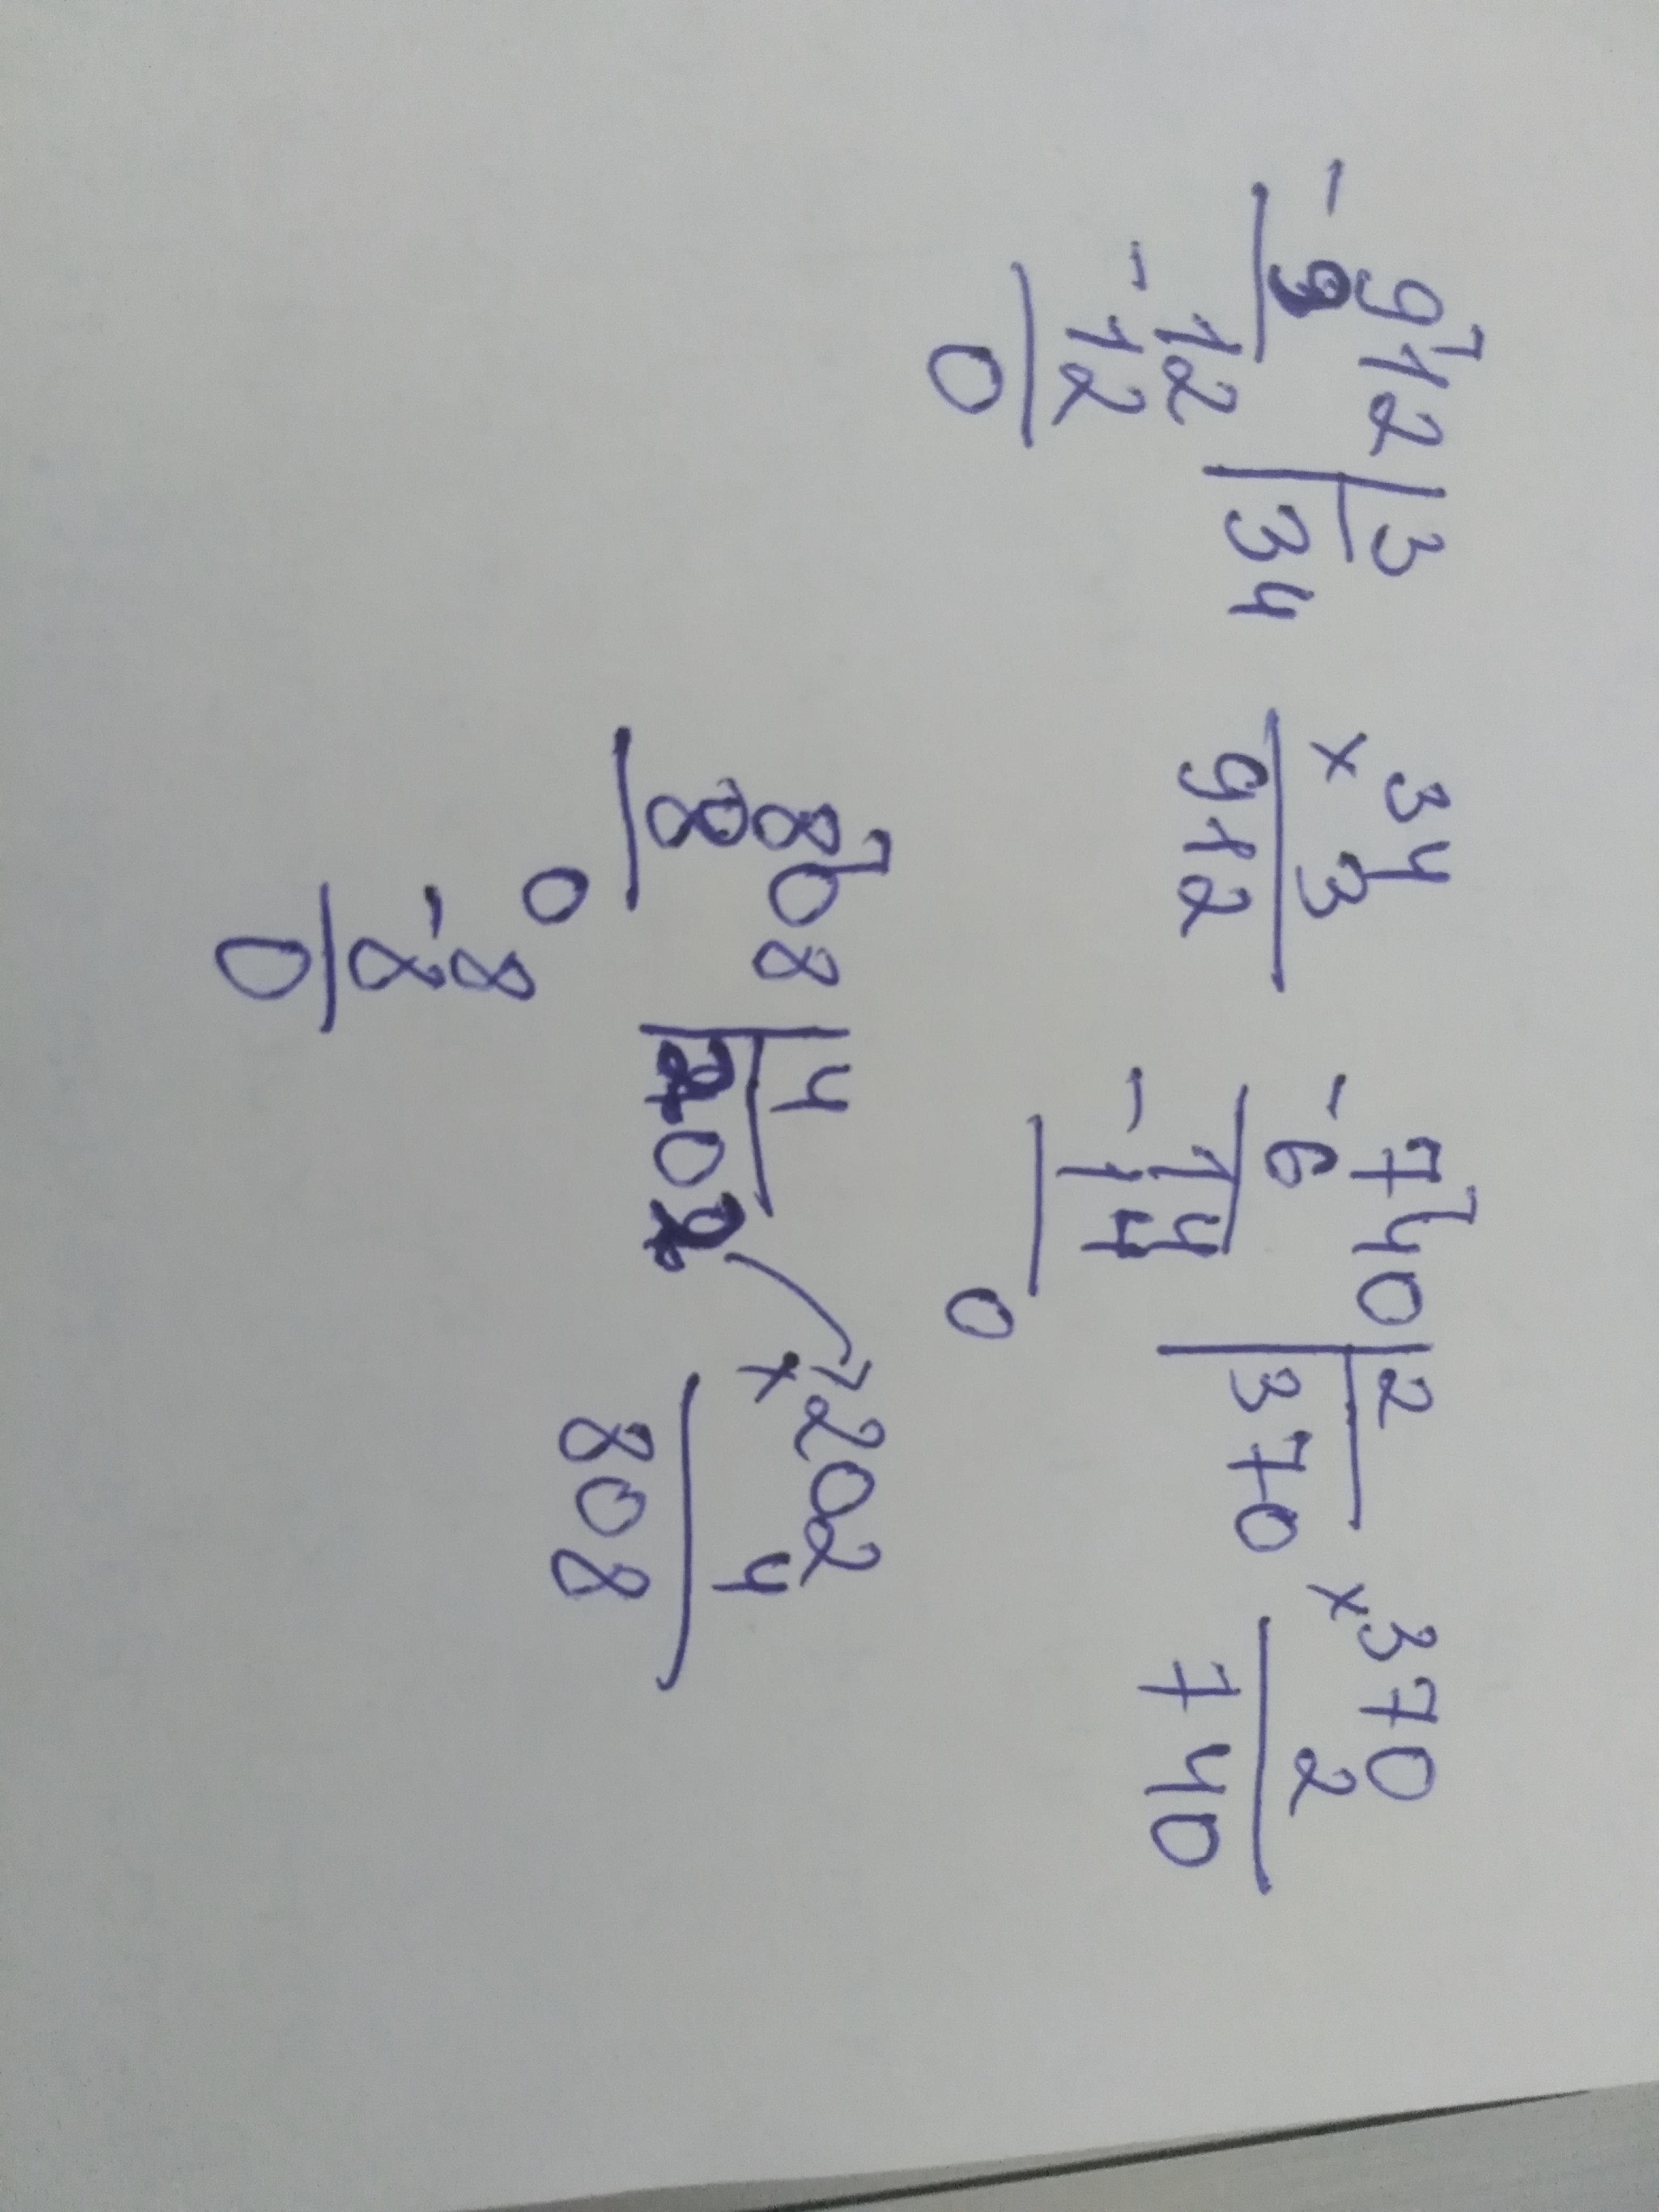 912 | 3    34    740 | 2    370
- 9 | 34    × 3    - 6 | 370    × 2
12    912    14    740
- 12    - 14
0    0
808 | 4    202
8 | 202    × 4
0 8    808
- 8
0